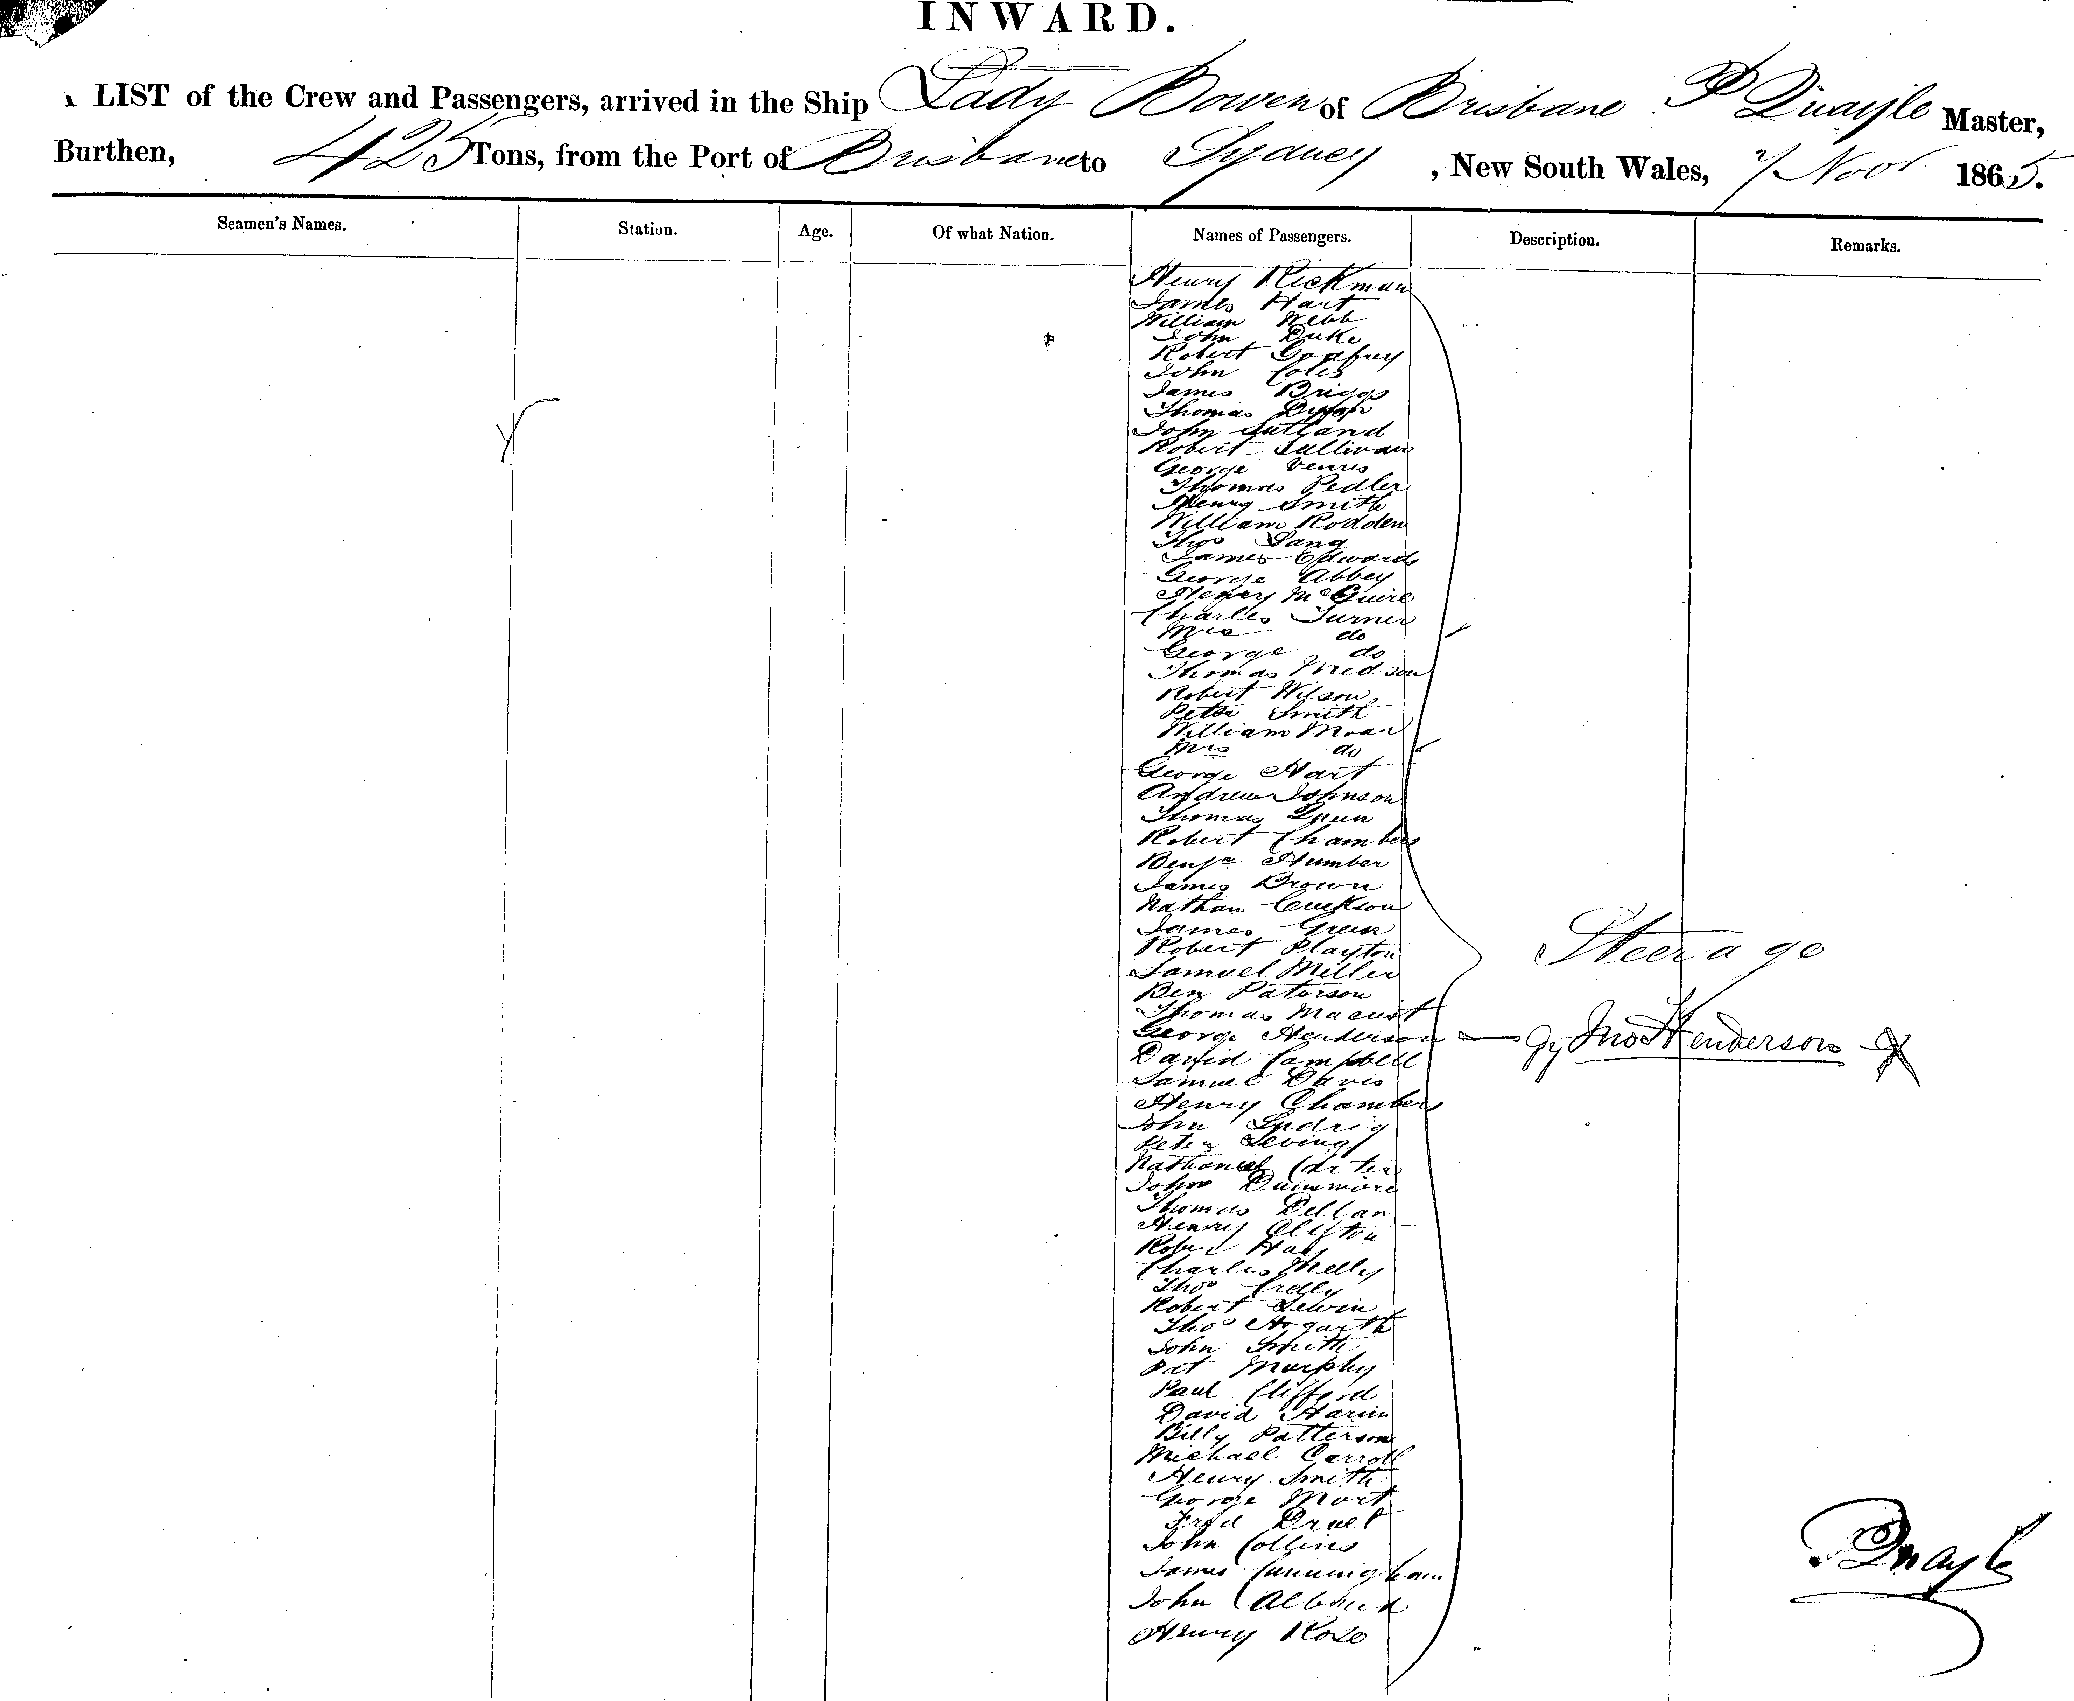 INWARD.
LIST of the Crew and Passengers, arrived in the Ship Lady Bowen of Brisbane P Quayle Master,
Burthen, 425 Tons, from the Port of Brisbane to Sydney, New South Wales, 7 Novr 1865.
Seamen's Names. Station. Age. Of what Nation. Names of Passengers. Description. Remarks.
Henry Rickman
James Hart
William Webb
John Duke
Robert Godfrey
John Coles
James Briggs
Thomas
John Sutland
Robert Sullivan
George
Thomas Pedler
Henry Smith
William Rodden
Thos Lang
James Edwards
George Abbey
Henry McGuire
Charles Turner
Mrs do
George do
Thomas
Robert Wilson
Peter Smith
William Moar
Mrs do
George Hart
Andrew Johnson
Thomas
Robert Chambers
Benjn Humber
James Brown
Nathan
James Green
Robert Playton
Samuel Miller
Steerage
Ben Paterson
Thomas
George Henderson — Jno Henderson
David Campbell
Samuel Davis
Henry Chambers
John
Peter
Nathaniel Carter
John Dunmore
Thomas
Henry Clifton
Robert
Charles Melly
Thos
Robert Lewin
Thos Hogarth
John Smith
Pat Murphy
Paul Clifford
David
Billy Patterson
Michael Carroll
Henry Smith
George Mort
Fred
John Collins
James Cunningham
John
Henry Rose
P Quayle